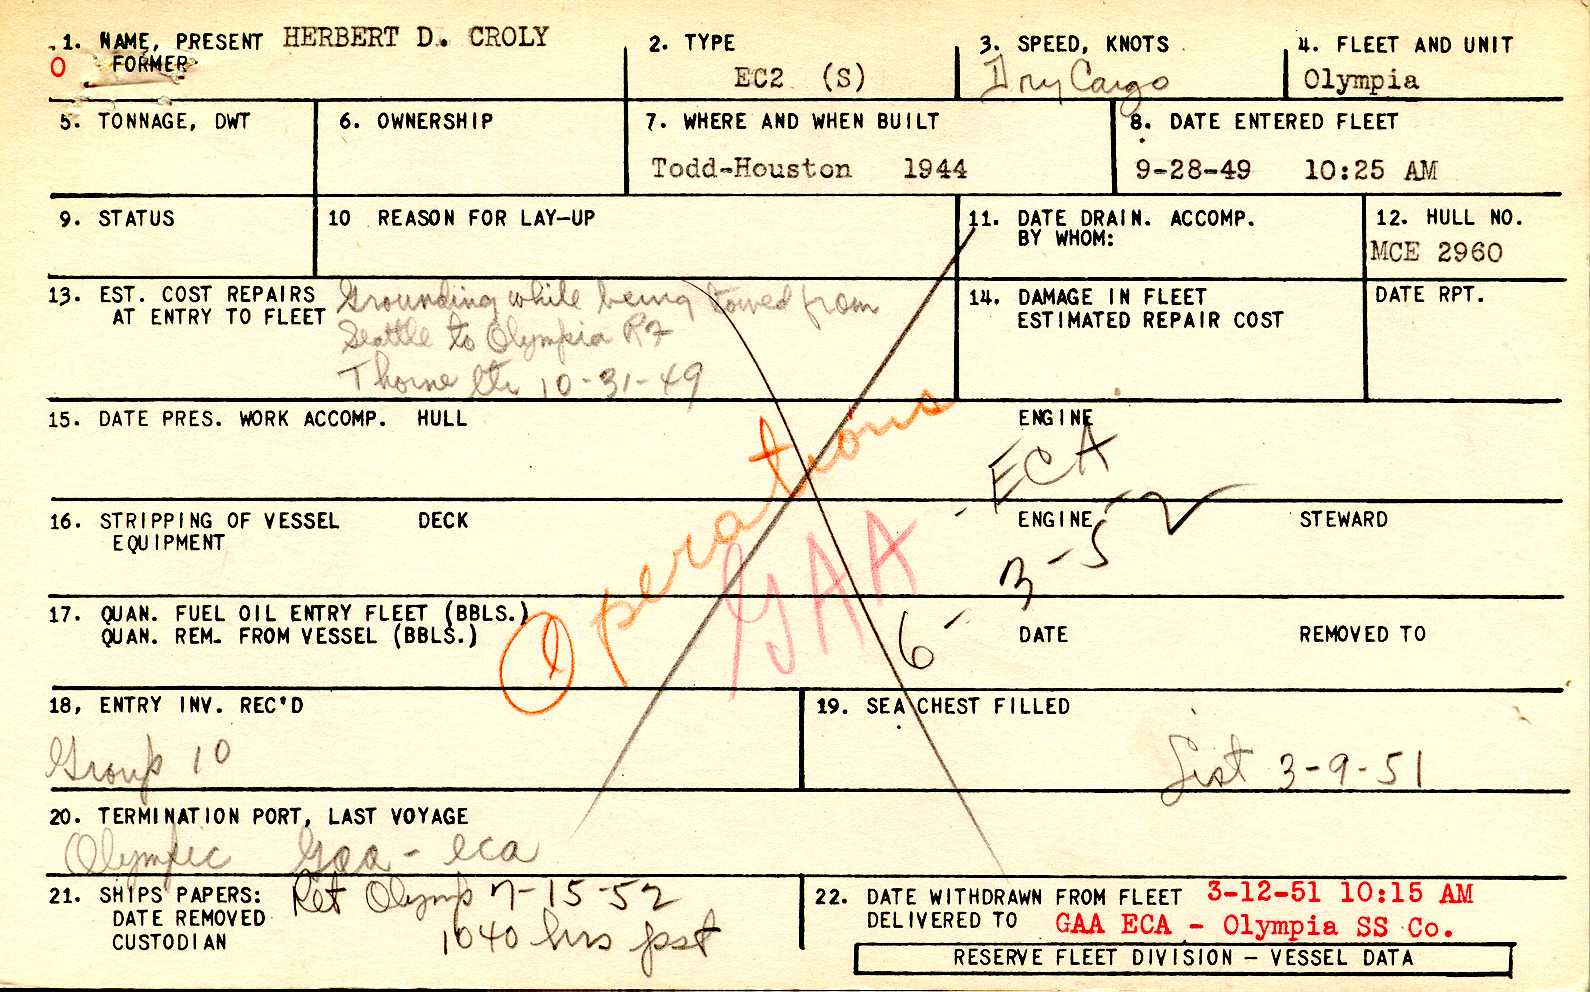 1. NAME, PRESENT HERBERT D. CROLY
O FORMER
2. TYPE
EC2 (S)
3. SPEED, KNOTS
Dry Cargo
4. FLEET AND UNIT
Olympia
5. TONNAGE, DWT
6. OWNERSHIP
7. WHERE AND WHEN BUILT
Todd-Houston 1944
8. DATE ENTERED FLEET
9-28-49 10:25 AM
9. STATUS
10 REASON FOR LAY-UP
11. DATE DRAIN. ACCOMP.
BY WHOM:
12. HULL NO.
MCE 2960
13. EST. COST REPAIRS
AT ENTRY TO FLEET
Grounding while being towed from
Seattle to Olympia RF
Thorne ltr 10-31-49
14. DAMAGE IN FLEET
ESTIMATED REPAIR COST
DATE RPT.
15. DATE PRES. WORK ACCOMP. HULL
ENGINE
16. STRIPPING OF VESSEL DECK
EQUIPMENT
ENGINE
STEWARD
Operations
GAA - ECA
6-3-52
17. QUAN. FUEL OIL ENTRY FLEET (BBLS.)
QUAN. REM. FROM VESSEL (BBLS.)
DATE
REMOVED TO
18, ENTRY INV. REC'D
Group 10
19. SEA CHEST FILLED
List 3-9-51
20. TERMINATION PORT, LAST VOYAGE
Olympic Gaa - eca
21. SHIPS PAPERS:
DATE REMOVED
CUSTODIAN
Ret Olymp 7-15-52
1040 hrs pst
22. DATE WITHDRAWN FROM FLEET 3-12-51 10:15 AM
DELIVERED TO GAA ECA - Olympia SS Co.
RESERVE FLEET DIVISION - VESSEL DATA